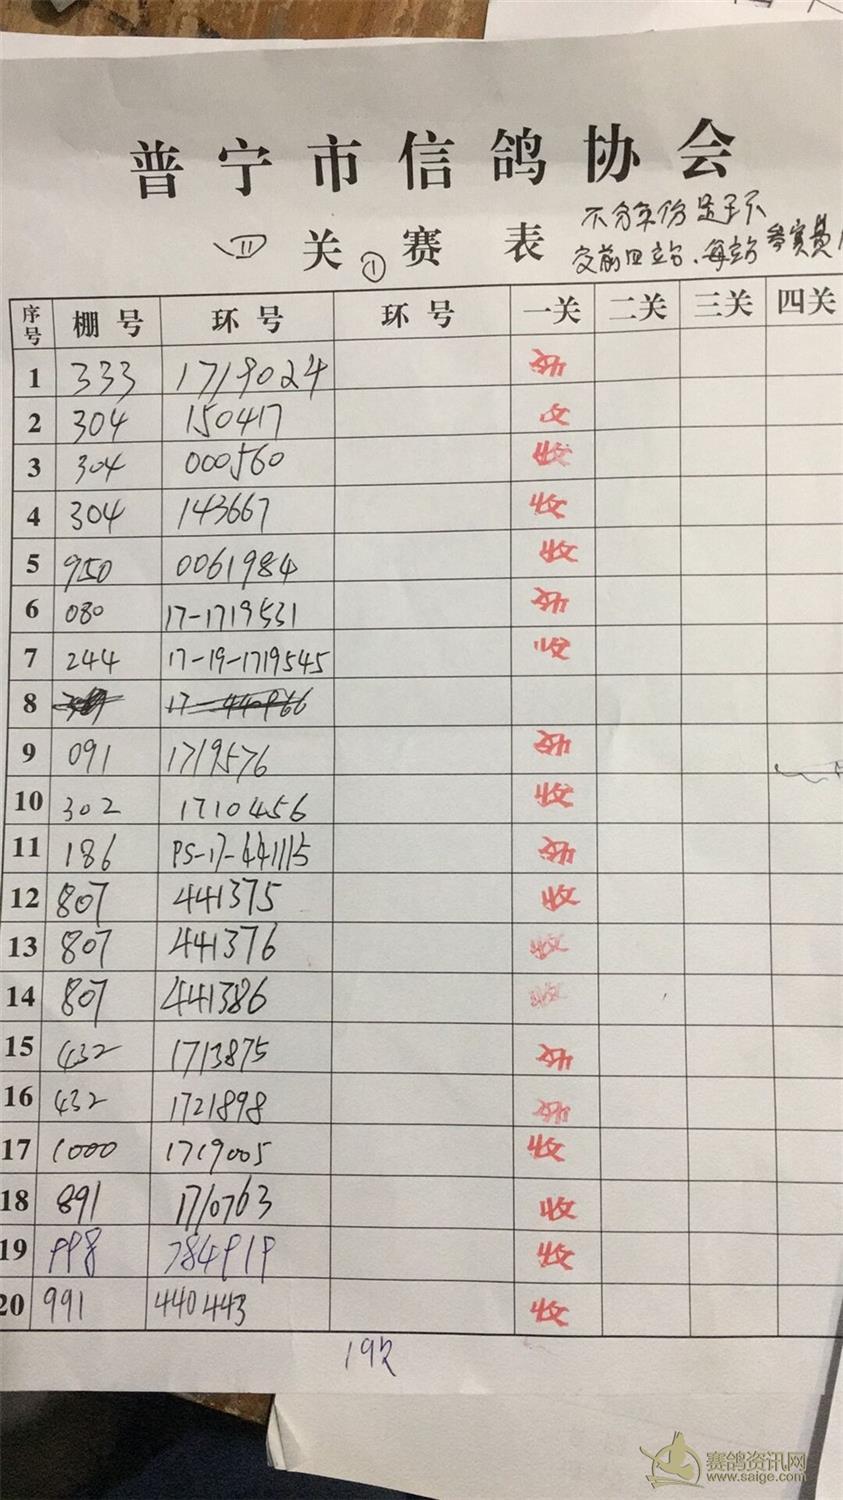 普宁市信鸽协会
四关①赛表
不分年份是手不
交前四站、每站参赛费
序号 棚号 环号 环号 一关 二关 三关 四关
1 333 1719024 收
2 304 150417 收
3 304 000560 收
4 304 143667 收
5 950 0061984 收
6 080 17-1719531 收
7 244 17-19-1719545 收
8 17-440966
9 091 1719576 收
10 302 1710456 收
11 186 PS-17-441115 收
12 807 441375 收
13 807 441376 收
14 807 441386 收
15 432 1713875 收
16 432 1721898 收
17 1000 1719005 收
18 891 1710763 收
19 998 784919 收
20 991 440443 收
19
赛鸽资讯网
www.saige.com